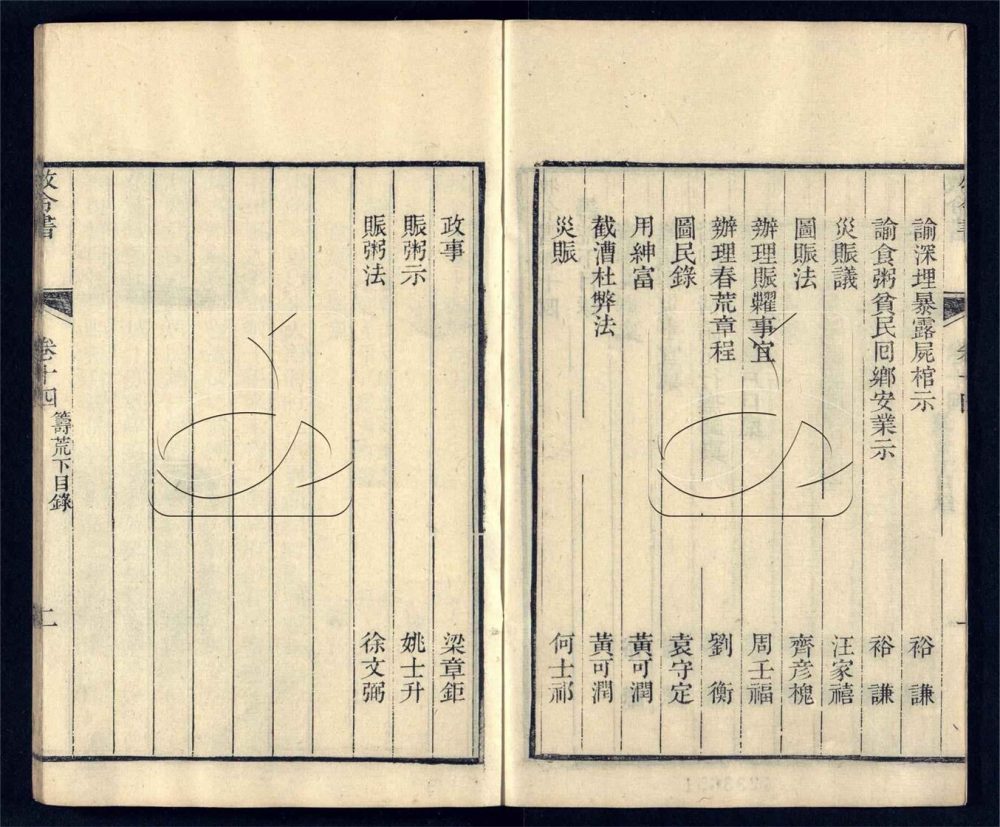 諭深埋暴露屍棺示 裕謙
諭食粥貧民囘鄉安業示 裕謙
災賑議 汪家禧
圖賑法 齊彥槐
辦理賑糶事宜 周壬福
辦理春荒章程 劉衡
圖民錄 袁守定
用紳富 黃可潤
截漕杜弊法 黃可潤
災賑 何士祁
政事 梁章鉅
賑粥示 姚士升
賑粥法 徐文弼
牧令書 卷十四 籌荒下目錄 二